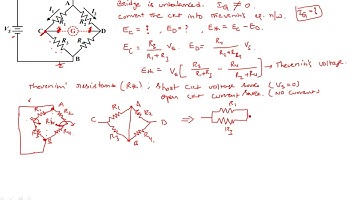 Bridge is unbalanced. I_G ≠ 0.
I_G = ?
Convert the ckt into Thevenin's eq. n/w.
E_C = ?, E_D = ?, E_th = E_C - E_D.
E_C = R_3 / (R_1 + R_3) V_s E_D = R_4 / (R_2 + R_4) V_s
E_th = V_s [ R_3 / (R_1 + R_3) - R_4 / (R_2 + R_4) ] → Thevenin's voltage.
Thevenin' resistance (R_th), Short ckt voltage source (V_s = 0)
open ckt current source. (No current)
V_s
I_1
R_1
R_2
C
G
D
R_3
R_4
B
A
R_1
R_2
R_3
R_4
B
C
A
R_1
R_2
R_3
R_4
D
B
R_1
R_3